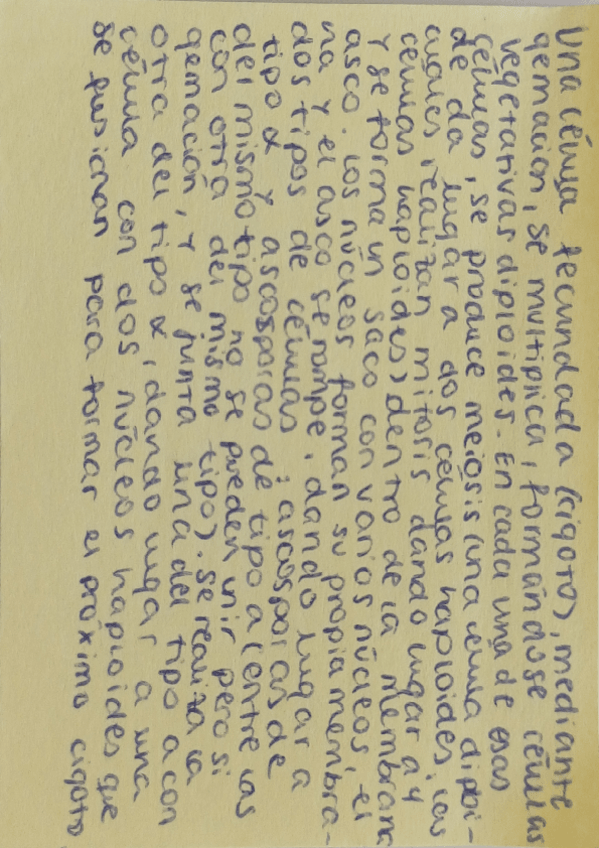 Una célula fecundada (cigoto), mediante
gemación, se multiplica, formándose células
vegetativas diploides. En cada una de esas
células, se produce meiosis (una célula diploi-
de da lugar a dos células haploides, las
cuales realizan mitosis dando lugar a 4
células haploides) dentro de la membrana
y se forma un saco con varios núcleos, el
asco. Los núcleos forman su propia membra-
na y el asco se rompe, dando lugar a
dos tipos de células: ascosporas de
tipo α y ascosporas de tipo a (entre las
del mismo tipo no se pueden unir pero si
con otra del mismo tipo). Se realiza la
gemación, y se junta una del tipo a con
otra del tipo α, dando lugar a una
célula con dos núcleos haploides que
se fusionan para formar el próximo cigoto